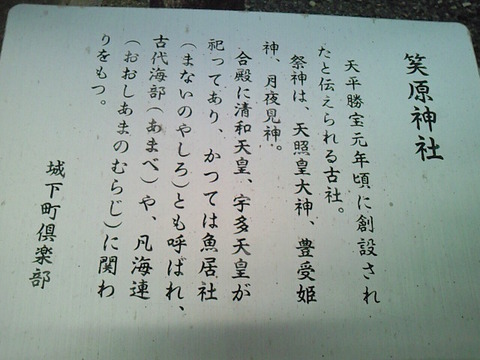 笑原神社
天平勝宝元年頃に創設され
たと伝えられる古社。
祭神は、天照皇大神、豊受姫
神、月夜見神。
合殿に清和天皇、宇多天皇が
祀ってあり、かつては魚居社
(まないのやしろ)とも呼ばれ、
古代海部(あまべ)や、凡海連
(おおしあまのむらじ)に関わ
りをもつ。
城下町倶楽部